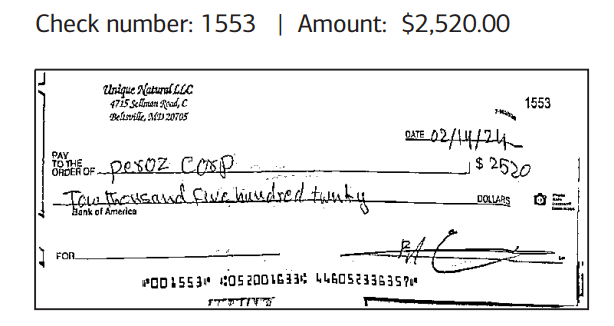 Check number: 1553 | Amount: $2,520.00
Unique Natural LLC
4715 Sellman Road, C
Beltsville, MD 20705
1553
DATE 02/14/24
PAY
TO THE
ORDER OF peroz Corp $ 2520
Tow thousand five hundred twnty DOLLARS
Bank of America
FOR
⑈001553⑈ ⑆052001633⑆ 446052336357⑈